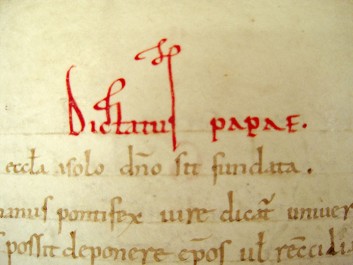 Dictatus papae.
eccła a solo dño sit fundata.
manus pontifex iure dicat᷑ univer
s possit deponere epõs ul reccilia